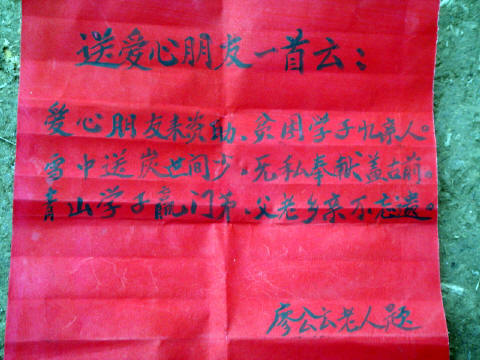 送爱心朋友一首云：
爱心朋友来资助、贫困学子忆亲人。
雪中送炭世间少。无私奉献盖古前。
青山学子赢门第、父老乡亲不忘遗。
廖公云老人题